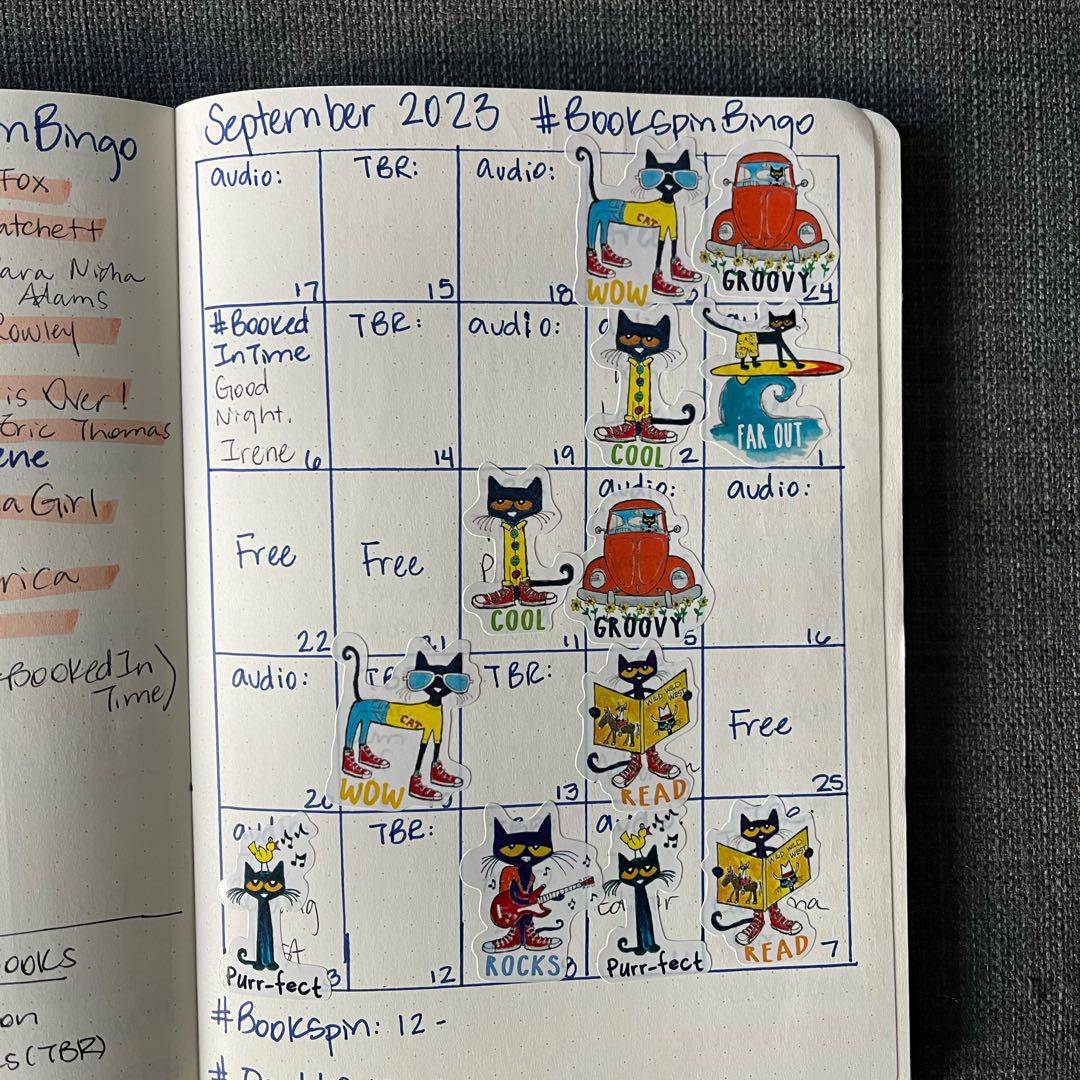 Bingo
September 2023 #BookspinBingo
Fox
Nisha
Adams
Rowley
is Over!
Eric Thomas
Girl
BookedIn
Time)
(TBR)
audio: TBR: audio:
CAT
17 15 18 WOW GROOVY 24
#Booked TBR: audio:
InTime
Good
Night,
Irene 6 14 19 COOL 2 FAR OUT 1
audio: audio:
Free Free
22 21 COOL 11 GROOVY 5 16
audio: TBR:
CAT
WILD WILD WEST
Free
WOW 13 READ 25
TBR:
WILD WILD WEST
Purr-fect 3 12 ROCKS 8 Purr-fect READ 7
#Bookspin: 12 -